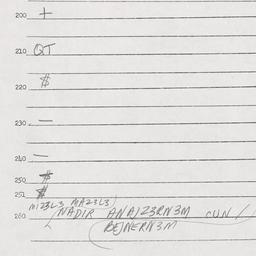 200 +
210 QT
220 $
230 —
240 —
250 $
251 #
MI23L3 MA23L3
260 (NADIR ANAIZ3RN3M CUN /
(BEJNERN3M